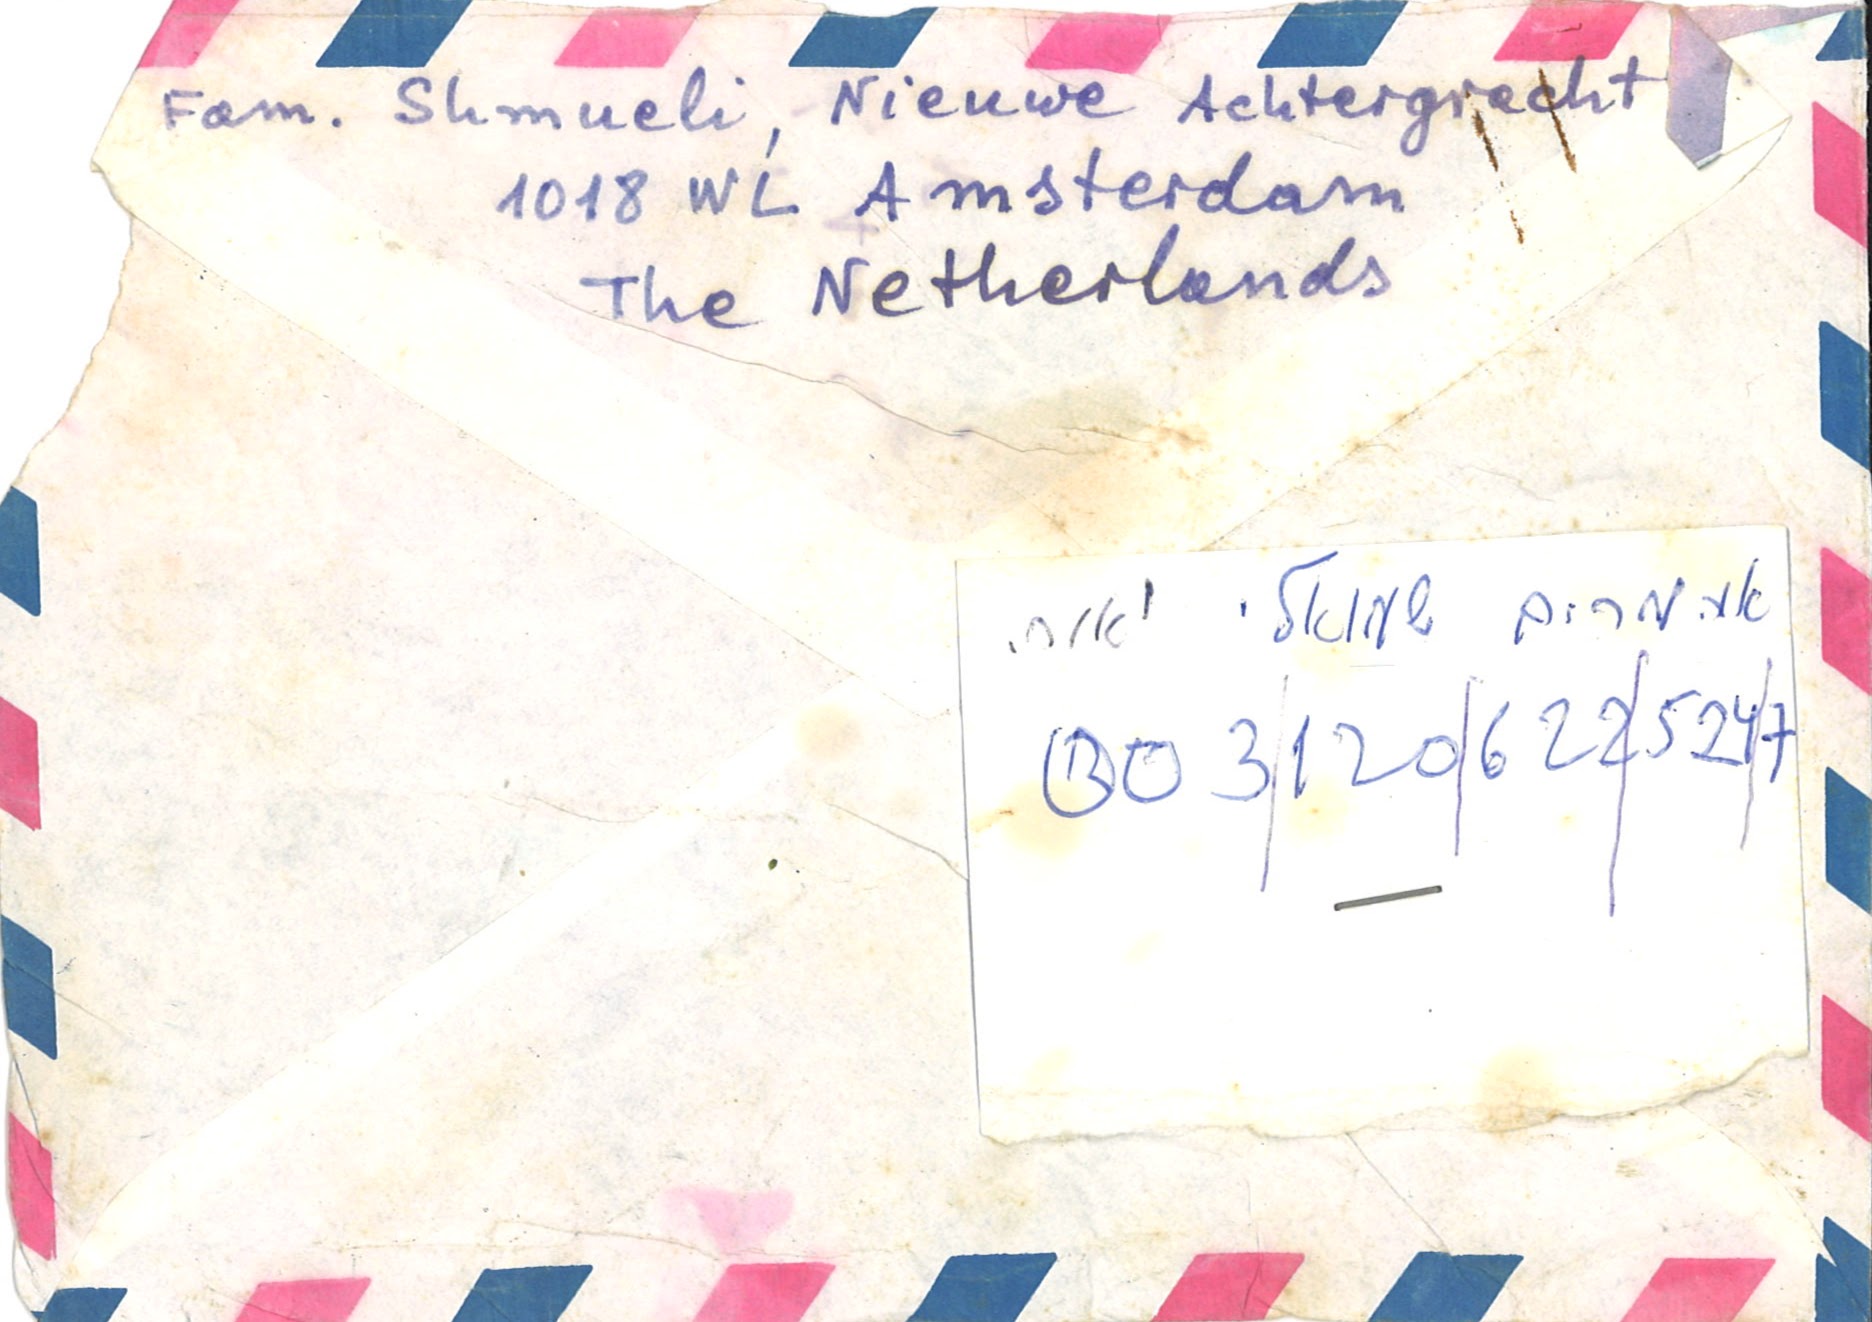 Fam. Shmueli, Nieuwe Achtergracht
1018 WL Amsterdam
The Netherlands
שמואלי
003/120/622/524/7